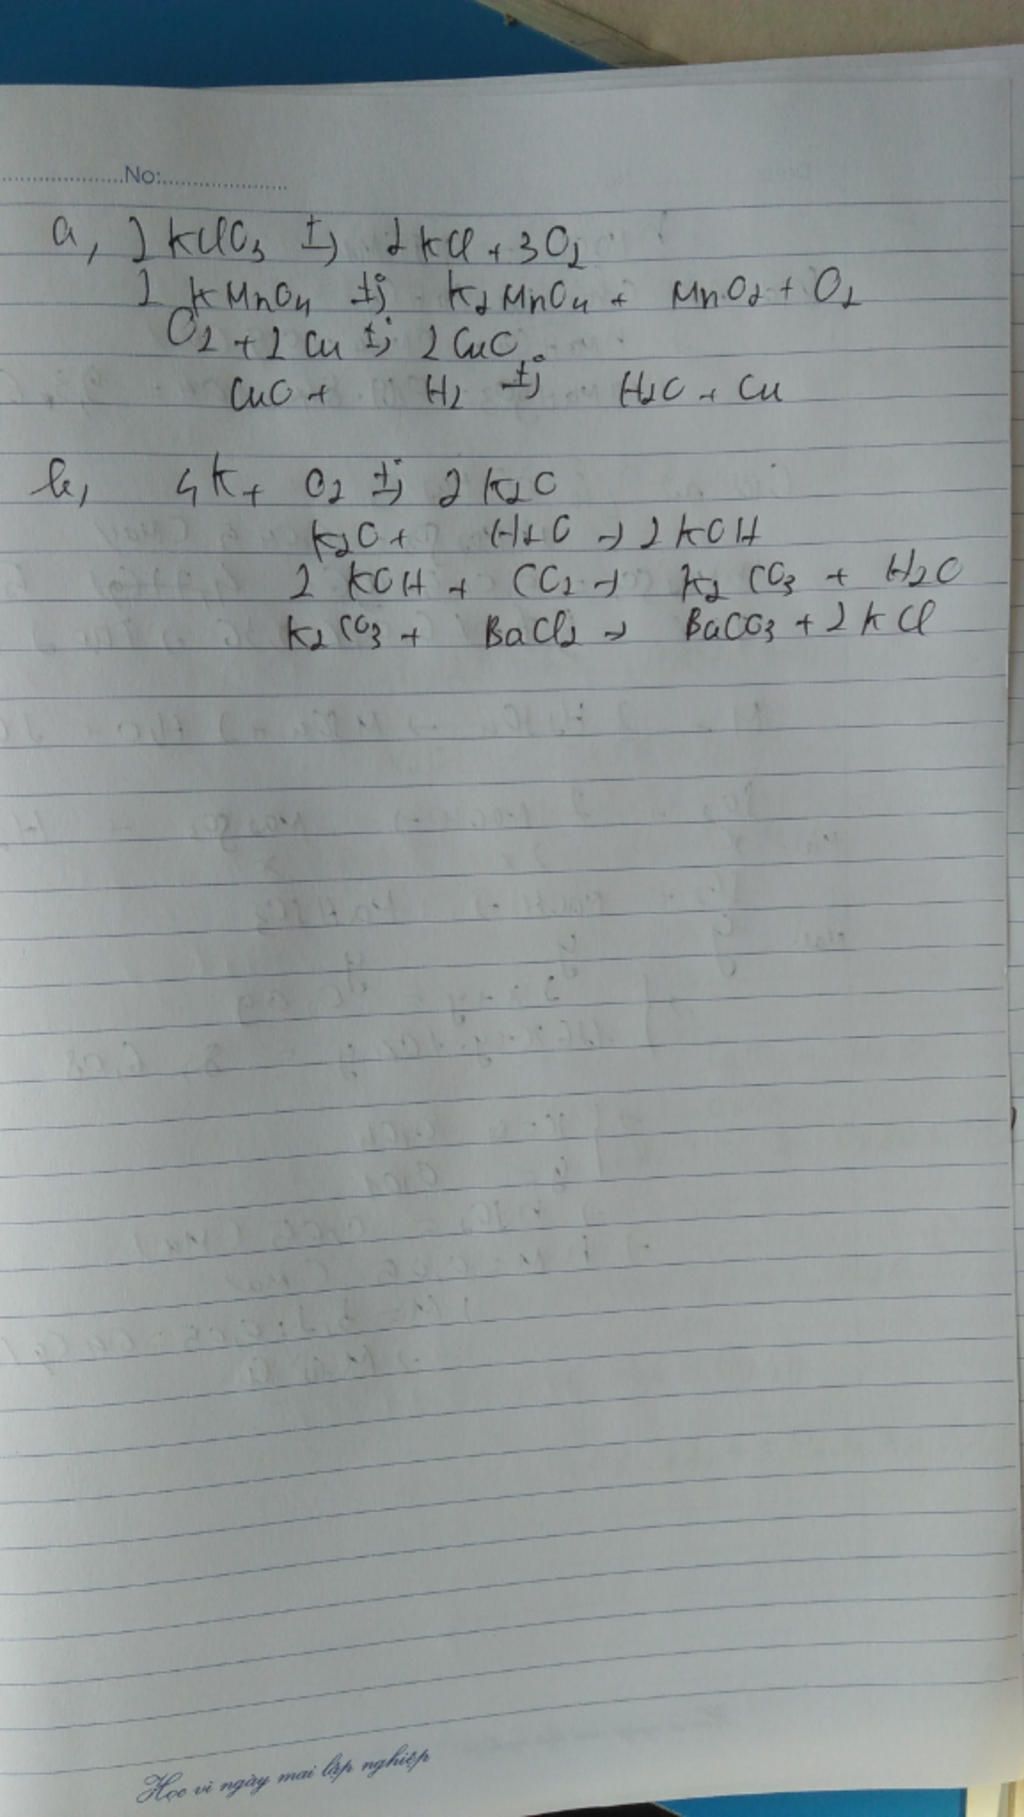 No:
a, 2 KClO3 t°→ 2 KCl + 3 O2
2 KMnO4 t°→ K2MnO4 + MnO2 + O2
O2 + 2 Cu t°→ 2 CuO
CuO + H2 t°→ H2O + Cu
b, 4K + O2 t°→ 2 K2O
K2O + H2O → 2 KOH
2 KOH + CO2 → K2CO3 + H2O
K2CO3 + BaCl2 → BaCO3 + 2 KCl
Học vì ngày mai lập nghiệp